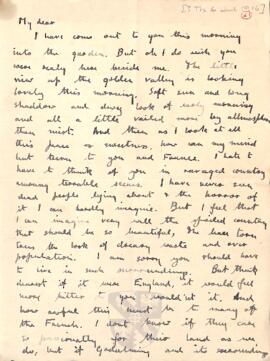 My dear
I have come out to you this morning
into the garden. But oh I do wish you
were really here beside me. The little
view up the golden valley is looking
lovely this morning. Soft sun and long
shadows and dewy look of early morning
and all a little vailed more by atmosphere
than mist. And then as I look at all
this peace & sweetness, how can my mind
but turn to you and France. I hate
to think of you in ravaged country
among terrible scenes. I have never seen
dead people lying about & the horror of
it I can hardly imagine. But I feel that
I can imagine very well the spoiled country
that should be so beautiful,
the look of dreary waste and over
population. I am sorry you should have
to live in such surroundings. But think
dearest if it was England, it would feel
more bitter to you wouldn't it. And
how awful this must be to many of
the French. I don't know if they care
so passionately for their land as we
do, but if Godalming and its surrounding